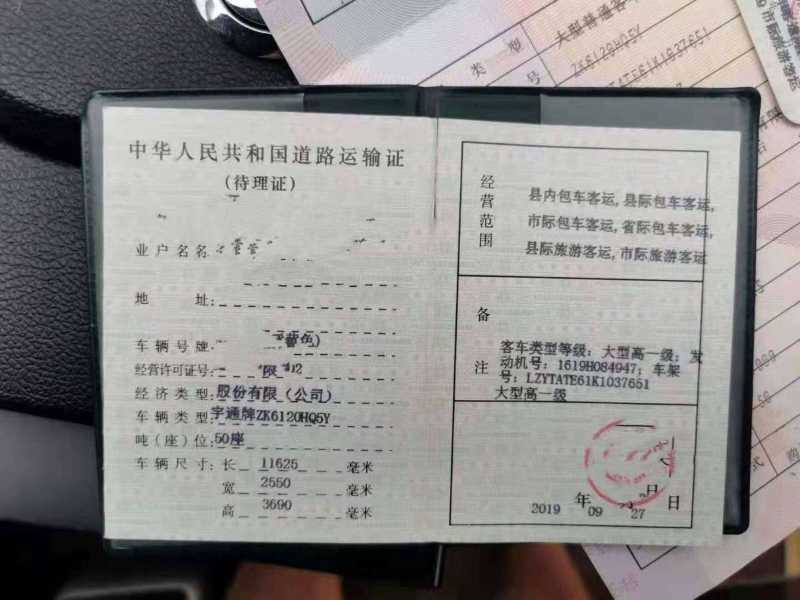 大型普通客
类型
ZK6120HQ5Y
号
TATE61K1037651
中华人民共和国道路运输证
(待理证)
业户名名
地 址:
车辆号牌:
黄色)
经营许可证号:
经济类型:股份有限(公司)
车辆类型:宇通牌ZK6120HQ5Y
吨(座)位:50座
车辆尺寸:长 11625 毫米
宽 2550 毫米
高 3690 毫米
经营范围
县内包车客运,县际包车客运,
市际包车客运,省际包车客运,
县际旅游客运,市际旅游客运
备注
客车类型等级:大型高一级;发
动机号:1619H084947;车架
号:LZYTATE61K1037651
大型高一级
2019 年 09 月 27 日